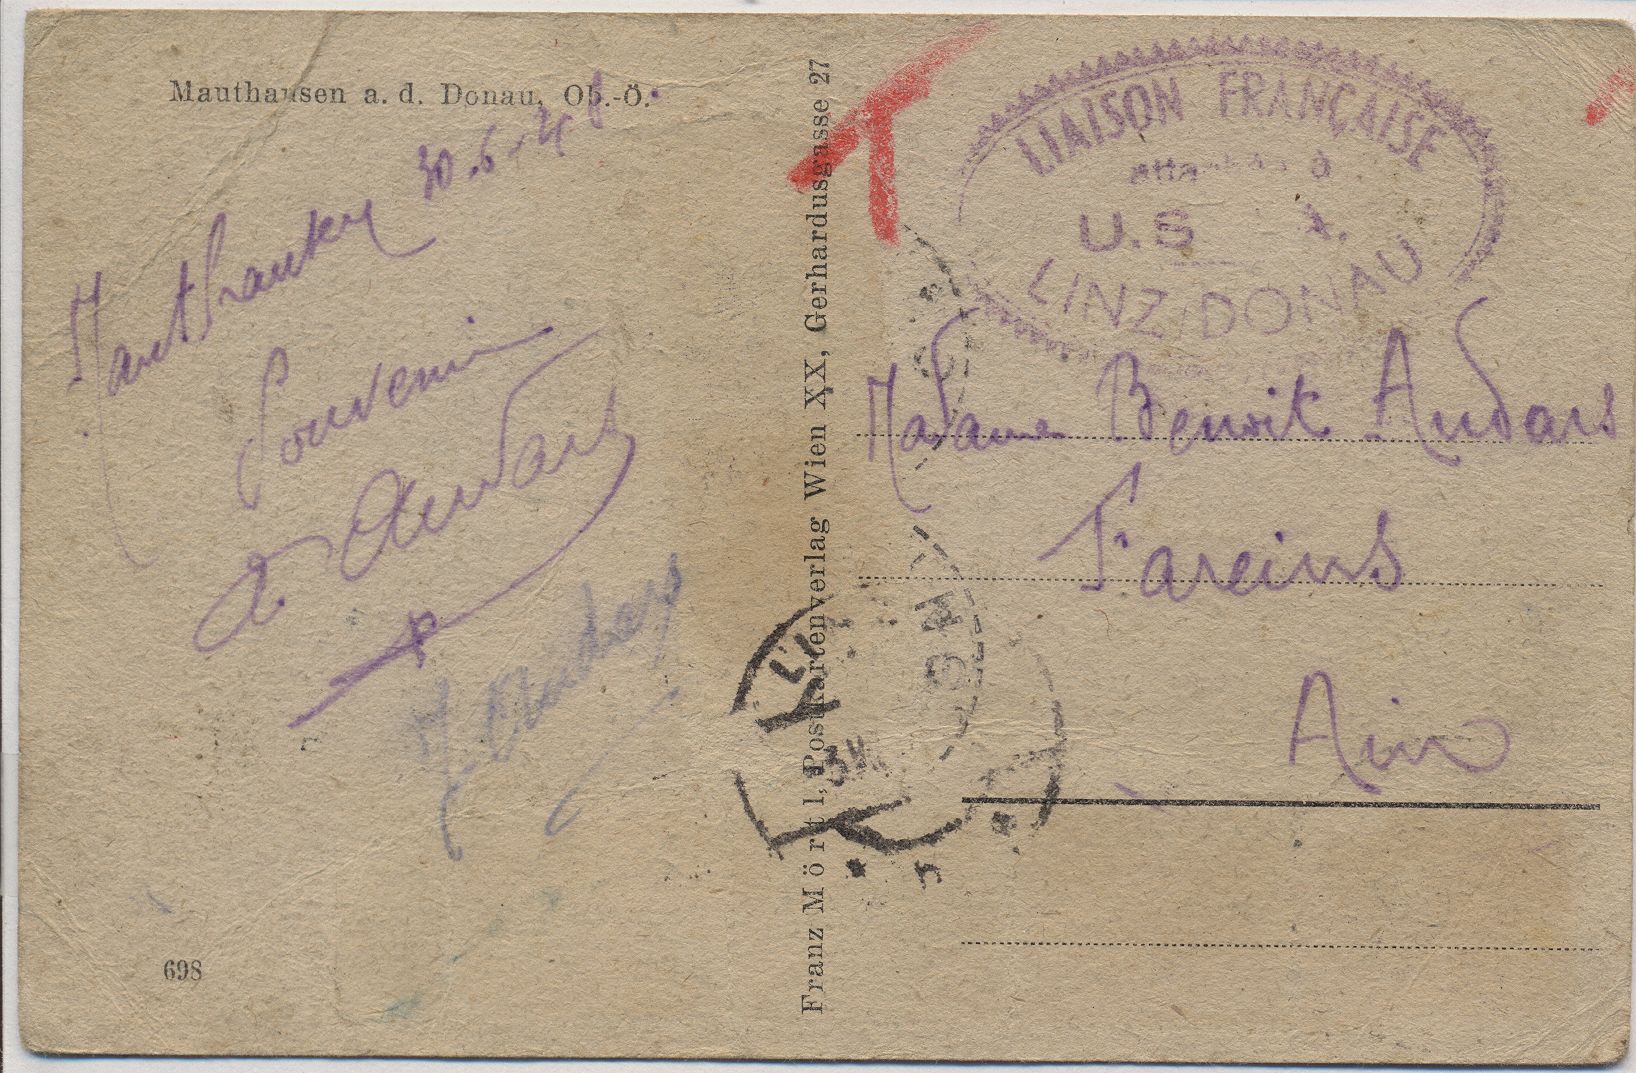 Mauthausen a. d. Donau, Ob.-Ö.
Mauthausen 30.6.48
Souvenir
Audars
M. Audars
698
Franz Mörtl, Postkartenverlag Wien XX, Gerhardusgasse 27
T
LIAISON FRANÇAISE
à
U.S
LINZ/DONAU
Madame Benoit Audars
Fareins
Ain